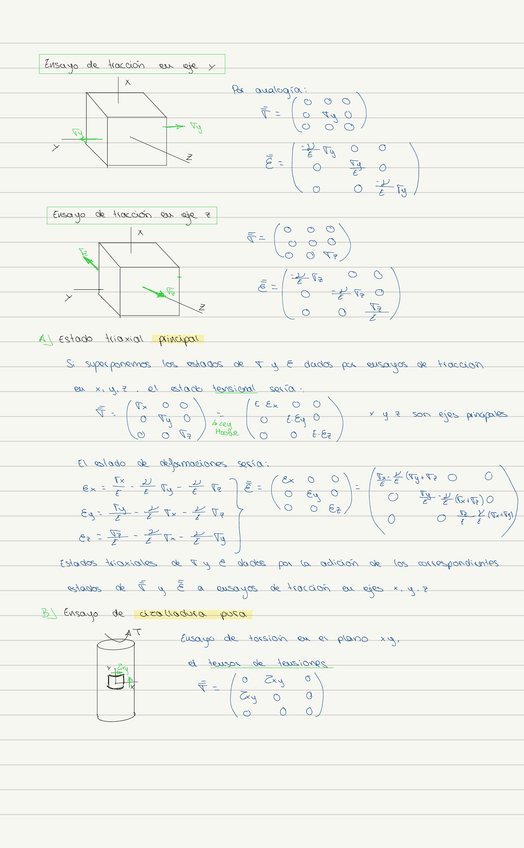 Ensayo de tracción en eje y
Por analogía:
x
σy
σy
y
z
σ̿ = (0 0 0; 0 σy 0; 0 0 0)
ε̿ = (-ν/E σy 0 0; 0 σy/E 0; 0 0 -ν/E σy)
Ensayo de tracción en eje z
x
σz
σz
y
z
σ̿ = (0 0 0; 0 0 0; 0 0 σz)
ε̿ = (-ν/E σz 0 0; 0 -ν/E σz 0; 0 0 σz/E)
A) Estado triaxial principal
Si superponemos los estados de σ y ε dados por ensayos de tracción
en x, y, z, el estado tensional sería:
σ̿ = (σx 0 0; 0 σy 0; 0 0 σz) = (E·εx 0 0; 0 E·εy 0; 0 0 E·εz) x y z son ejes principales
Ley
Hooke
El estado de deformaciones sería:
εx = σx/E - ν/E σy - ν/E σz
εy = σy/E - ν/E σx - ν/E σz
εz = σz/E - ν/E σx - ν/E σy
ε̿ = (εx 0 0; 0 εy 0; 0 0 εz) = (σx/E - ν/E (σy+σz) 0 0; 0 σy/E - ν/E (σx+σz) 0; 0 0 σz/E - ν/E (σx+σy))
Estados triaxiales de σ y ε dados por la adición de los correspondientes
estados de σ̿ y ε̿ a ensayos de tracción en ejes x, y, z
B) Ensayo de cizalladura pura
T
y
τxy
x
Ensayo de torsión en el plano xy,
el tensor de tensiones
σ̿ = (0 τxy 0; τxy 0 0; 0 0 0)